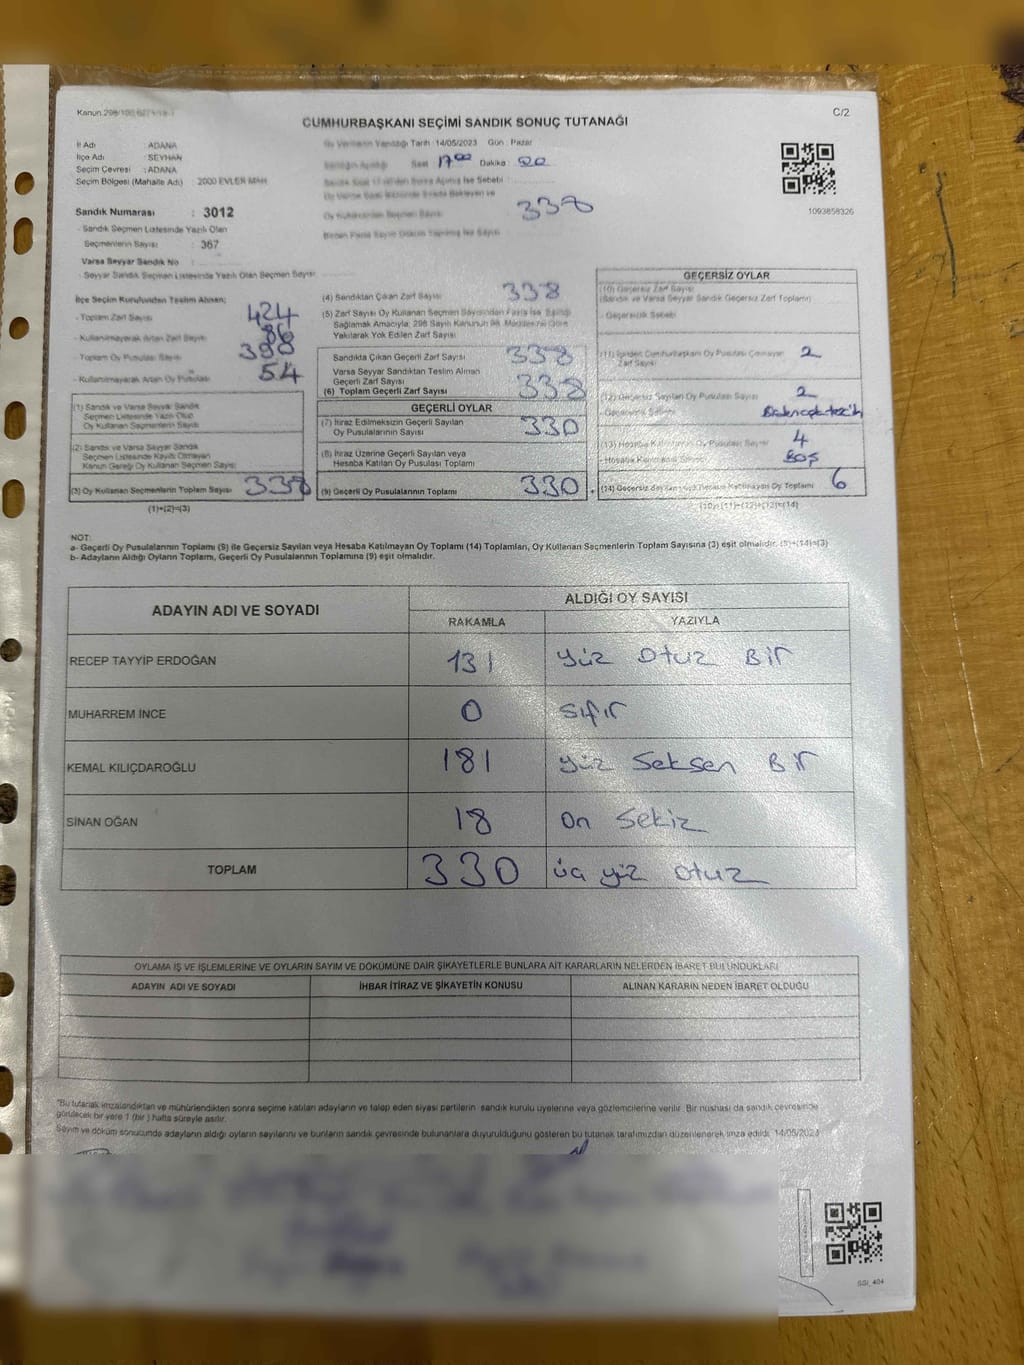 Kanun.298/
C/2
CUMHURBAŞKANI SEÇİMİ SANDIK SONUÇ TUTANAĞI
İl Adı : ADANA
İlçe Adı : SEYHAN
Seçim Çevresi : ADANA
Seçim Bölgesi (Mahalle Adı) : 2000 EVLER MAH
Tarih : 14/05/2023 Gün : Pazar
Saat 17 00 Dakika : 00
338
1093858326
Sandık Numarası : 3012
- Sandık Seçmen Listesinde Yazılı Olan
Seçmenlerin Sayısı : 367
Varsa Seyyar Sandık No :
- Seyyar Sandık Seçmen Listesinde Yazılı Olan Seçmen Sayısı
İlçe Seçim Kurulundan Teslim Alınan;
- Toplam Zarf Sayısı 424
- Kullanılmayarak Artan Zarf Sayısı 86
- Toplam Oy Pusulası Sayısı
- Kullanılmayarak Artan Oy Pusulası 54
(1) Sandık ve Varsa Seyyar Sandık
Seçmen Listesinde Yazılı Olup
Oy Kullanan Seçmenlerin Sayısı
(2) Sandık ve Varsa Seyyar Sandık
Seçmen Listesinde Kayıtlı Olmayan
Kanun Gereği Oy Kullanan Seçmen Sayısı
(3) Oy Kullanan Seçmenlerin Toplam Sayısı 338
(1)+(2)=(3)
(4) Sandıktan Çıkan Zarf Sayısı 338
(5) Zarf Sayısı Oy Kullanan Seçmen Sayısından Fazla İse Eşitliği
Sağlamak Amacıyla, 298 Sayılı Kanunun 98. Maddesine Göre
Yakılarak Yok Edilen Zarf Sayısı
Sandıkta Çıkan Geçerli Zarf Sayısı 338
Varsa Seyyar Sandıktan Teslim Alınan
Geçerli Zarf Sayısı
(6) Toplam Geçerli Zarf Sayısı 338
GEÇERLİ OYLAR
(7) İtiraz Edilmeksizin Geçerli Sayılan
Oy Pusulalarının Sayısı 330
(8) İtiraz Üzerine Geçerli Sayılan veya
Hesaba Katılan Oy Pusulası Toplamı
(9) Geçerli Oy Pusulalarının Toplamı 330
GEÇERSİZ OYLAR
(10) Geçersiz Zarf Sayısı
(Sandık ve Varsa Seyyar Sandık Geçersiz Zarf Toplamı)
- Geçersizlik Sebebi
(11) İçinden Cumhurbaşkanı Oy Pusulası Çıkmayan
Zarf Sayısı 2
(12) Geçersiz Sayılan Oy Pusulası Sayısı 2
(13) Hesaba Katılmayan Oy Pusulası Sayısı 4
BOŞ
(14) Geçersiz Sayılan veya Hesaba Katılmayan Oy Toplamı 6
(10)+(11)+(12)+(13)=(14)
NOT:
a- Geçerli Oy Pusulalarının Toplamı (9) ile Geçersiz Sayılan veya Hesaba Katılmayan Oy Toplamı (14) Toplamları, Oy Kullanan Seçmenlerin Toplam Sayısına (3) eşit olmalıdır. (9)+(14)=(3)
b- Adayların Aldığı Oyların Toplamı, Geçerli Oy Pusulalarının Toplamına (9) eşit olmalıdır.
ADAYIN ADI VE SOYADI
ALDIĞI OY SAYISI
RAKAMLA YAZIYLA
RECEP TAYYİP ERDOĞAN 131 Yüz Otuz Bir
MUHARREM İNCE 0 Sıfır
KEMAL KILIÇDAROĞLU 181 Yüz Seksen Bir
SİNAN OĞAN 18 On Sekiz
TOPLAM 330 üç yüz otuz
OYLAMA İŞ VE İŞLEMLERİNE VE OYLARIN SAYIM VE DÖKÜMÜNE DAİR ŞİKAYETLERLE BUNLARA AİT KARARLARIN NELERDEN İBARET BULUNDUKLARI
ADAYIN ADI VE SOYADI İHBAR İTİRAZ VE ŞİKAYETİN KONUSU ALINAN KARARIN NEDEN İBARET OLDUĞU
"Bu tutanak imzalandıktan ve mühürlendikten sonra seçime katılan adayların ve talep eden siyasi partilerin sandık kurulu üyelerine veya gözlemcilerine verilir. Bir nüshası da sandık çevresinde
görülecek bir yere 1 (bir) hafta süreyle asılır.
Sayım ve döküm sonucunda adayların aldığı oyların sayılarını ve bunların sandık çevresinde bulunanlara duyurulduğunu gösteren bu tutanak tarafımızdan düzenlenerek imza edildi. 14/05/2023
SSI_404